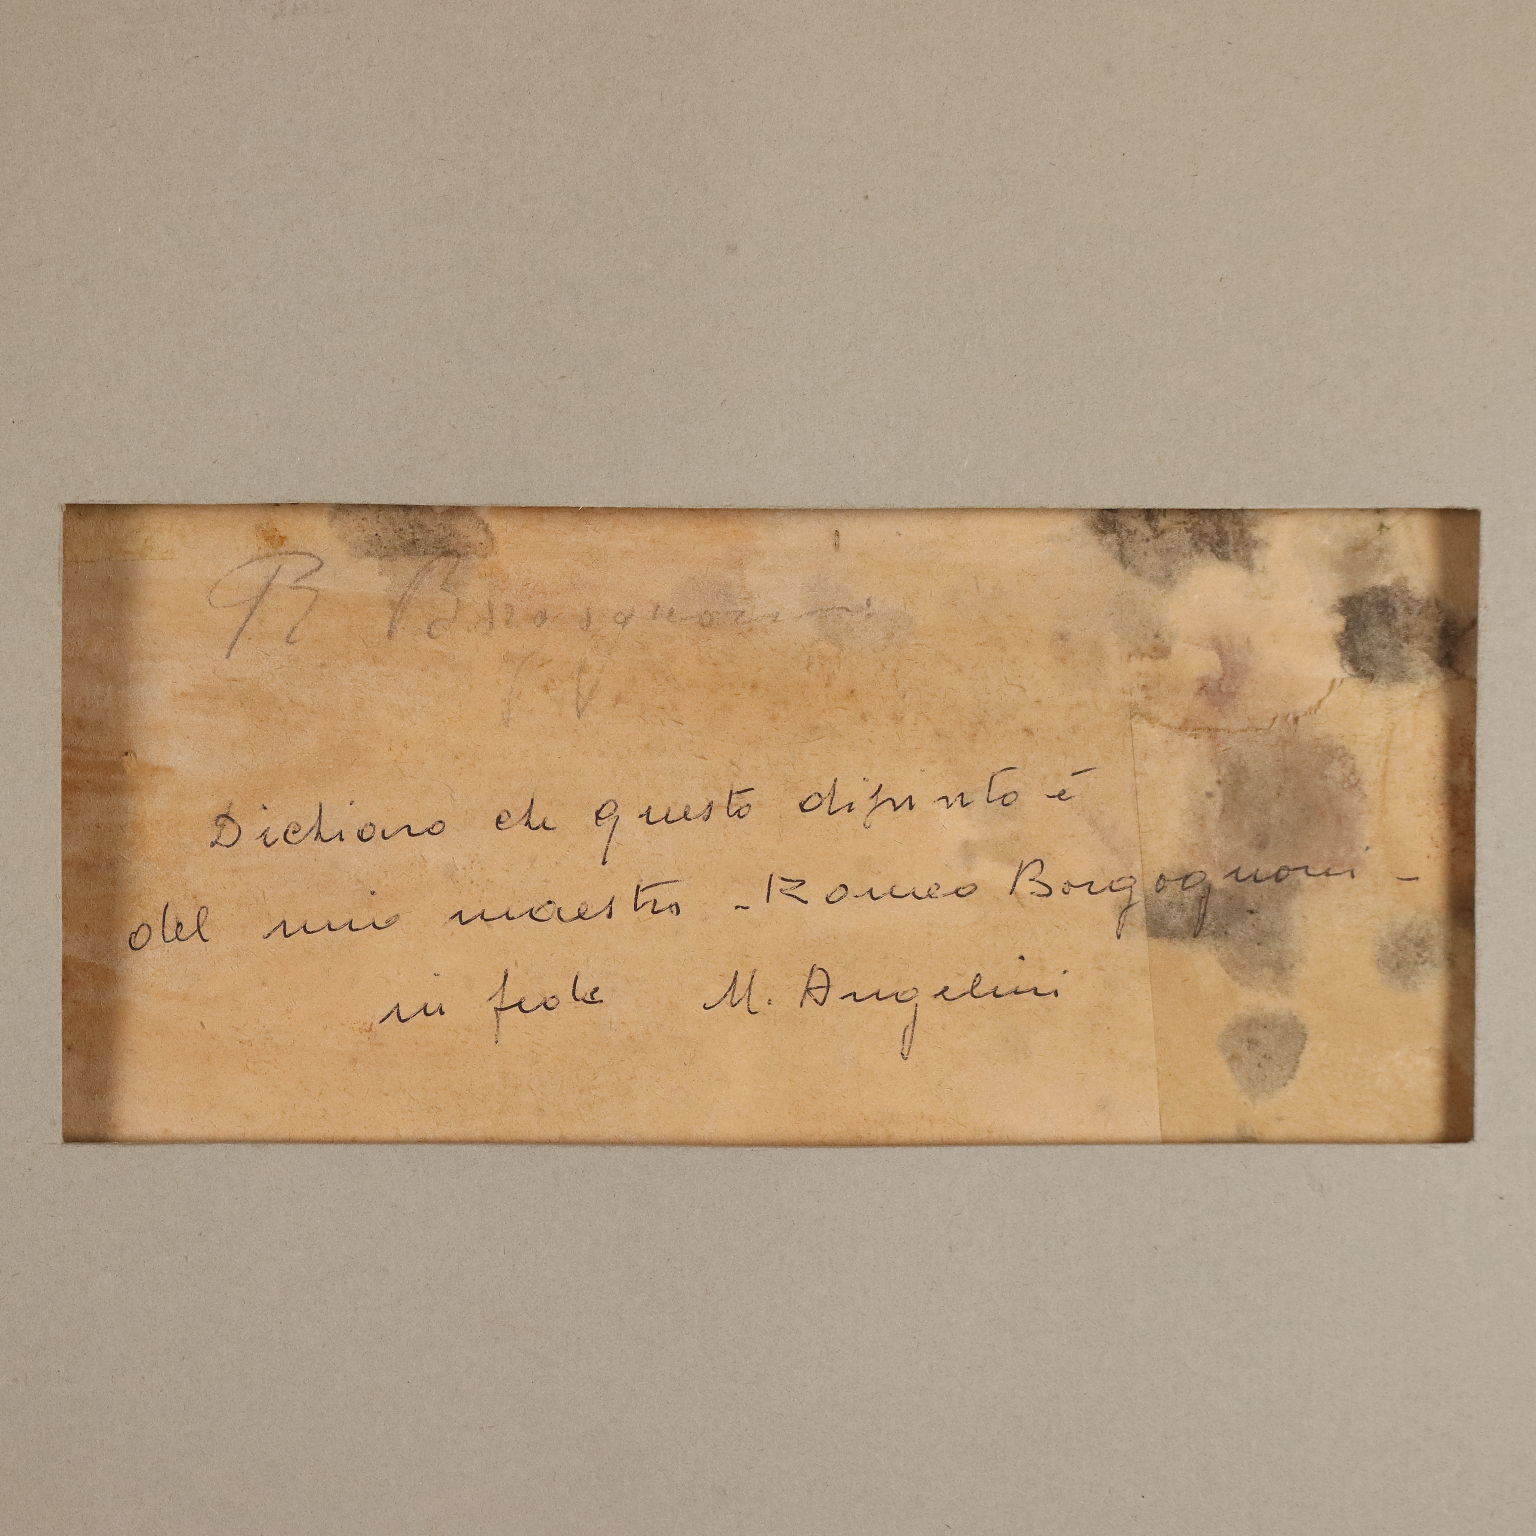 R Borgognoni
Dichiaro che questo dipinto è
del mio maestro - Romeo Borgognoni -
in fede M. Angelini